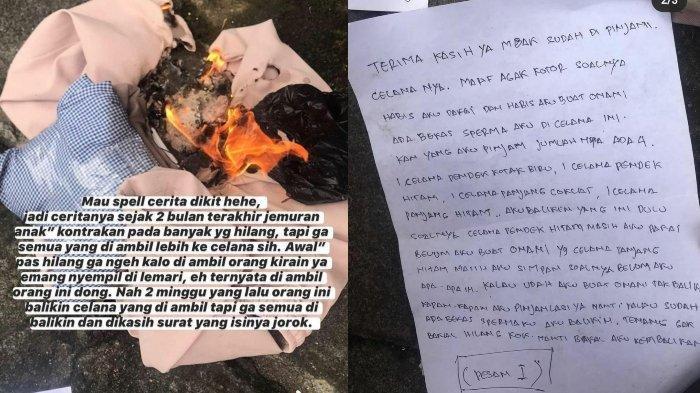 Mau spell cerita dikit hehe,
jadi ceritanya sejak 2 bulan terakhir jemuran
anak" kontrakan pada banyak yg hilang, tapi ga
semua yang di ambil lebih ke celana sih. Awal"
pas hilang ga ngeh kalo di ambil orang kirain ya
emang nyempil di lemari, eh ternyata di ambil
orang ini dong. Nah 2 minggu yang lalu orang ini
balikin celana yang di ambil tapi ga semua di
balikin dan dikasih surat yang isinya jorok.
2/3
TERIMA KASIH YA MBAK SUDAH DI PINJAMI.
CELANA NYA. MAAF AGAK KOTOR SOALNYA
HABIS AKU PAKAI DAN HABIS AKU BUAT ONANI
ADA BEKAS SPERMA AKU DI CELANA INI.
KAN YANG AKU PINJAM JUMLAH NYA ADA 4.
1 CELANA PENDEK KOTAK BIRU, 1 CELANA PENDEK
HITAM, 1 CELANA PANJANG COKLAT, 1 CELANA
PANJANG HITAM. AKU BALIKIN YANG INI DULU
SOALNYA CELANA PENDEK HITAM MASIH AKU PAKAI
BELUM AKU BUAT ONANI YG CELANA PANJANG
HITAM MASIH AKU SIMPAN SOALNYA BELUM AKU
APA-APAIN. KALAU UDAH AKU BUAT ONANI TAK BALIKIN
KAPAN-KAPAN AKU PINJAM LAGI YA NANTI KALAU SUDAH
ADA BEKAS SPERMAKU AKU BALIKIN. TENANG GAK
BAKAL HILANG KOK NANTI BAKAL AKU KEMBALIKAN